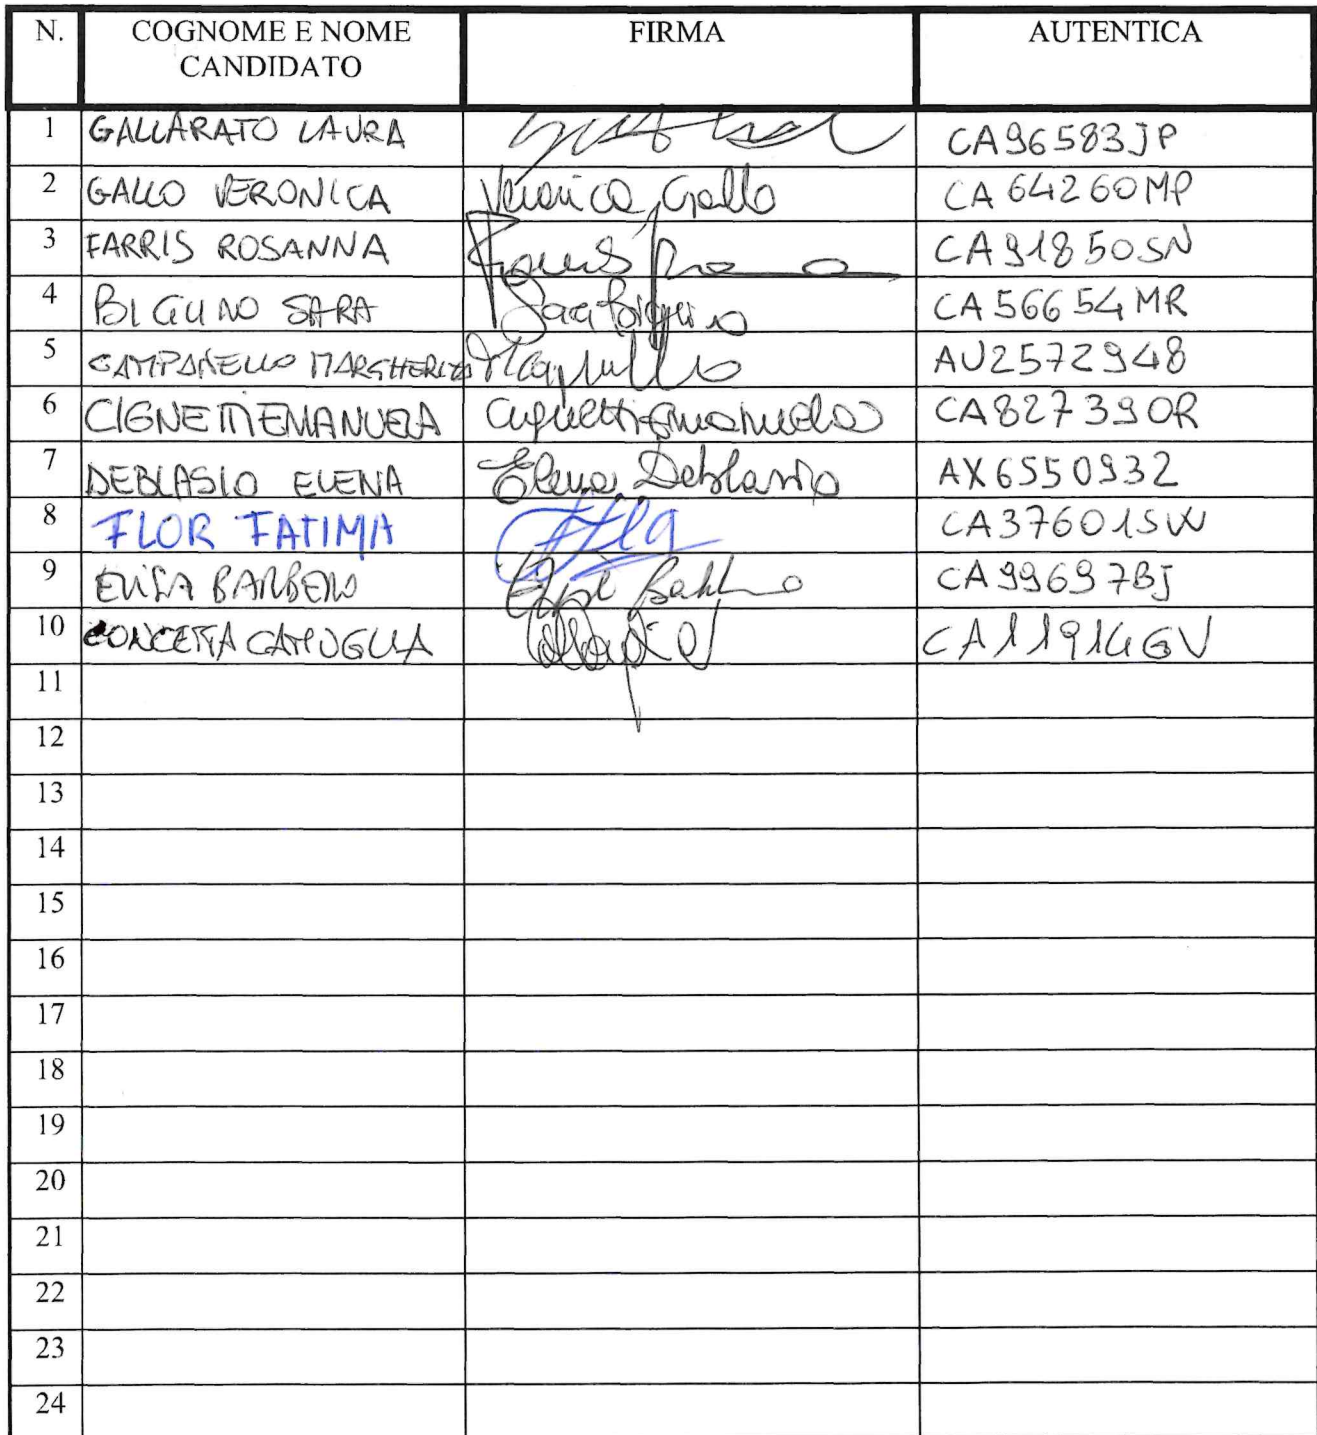 N. COGNOME E NOME FIRMA AUTENTICA
CANDIDATO
1 GALLARATO LAURA CA96583JP
2 GALLO VERONICA Veronica Gallo CA 64260MP
3 FARRIS ROSANNA CA91850SN
4 BIGLINO SARA Sara Biglino CA 56654MR
5 CAMPANELLO MARGHERITA AU2572948
6 CIGNETTI EMANUELA Cignetti Emanuela CA82739OR
7 DEBLASIO ELENA Elena Deblasio AX6550932
8 FLOR FATIMA CA37601SW
9 ELISA BARBERO CA99697BJ
10 CONCETTA CAMUGLIA CA11914GV
11
12
13
14
15
16
17
18
19
20
21
22
23
24